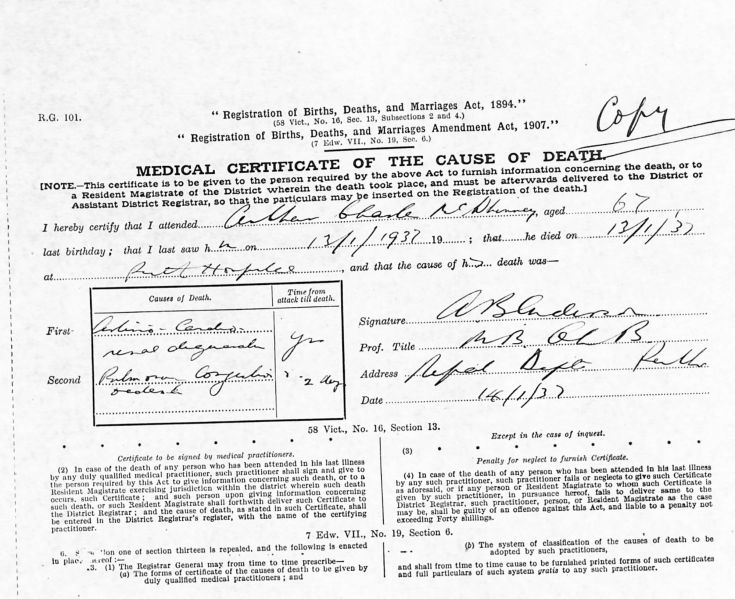 R.G. 101.
“ Registration of Births, Deaths, and Marriages Act, 1894.”
(58 Vict., No. 16, Sec. 13, Subsections 2 and 4.)
“ Registration of Births, Deaths, and Marriages Amendment Act, 1907.”
(7 Edw. VII., No. 19, Sec. 6.)
Copy
MEDICAL CERTIFICATE OF THE CAUSE OF DEATH.
[NOTE.—This certificate is to be given to the person required by the above Act to furnish information concerning the death, or to
a Resident Magistrate of the District wherein the death took place, and must be afterwards delivered to the District or
Assistant District Registrar, so that the particulars may be inserted on the Registration of the death.]
I hereby certify that I attended Arthur Charles , aged 67
last birthday; that I last saw h on 13/1/1937 19 ; that he died on 13/1/37
at Perth Hospital , and that the cause of h death was—
Causes of Death.
Time from attack till death.
First- Arterio-Cardio-
renal yrs
Second Pulmonary Congestion 2 days
oedema
Signature A B Anderson
Prof. Title M B Ch B.
Address Dept Perth
Date 14/1/37
58 Vict., No. 16, Section 13.
Certificate to be signed by medical practitioners.
(2) In case of the death of any person who has been attended in his last illness
by any duly qualified medical practitioner, such practitioner shall sign and give to
the person required by this Act to give information concerning such death, or to a
Resident Magistrate exercising jurisdiction within the district wherein such death
occurs, such Certificate; and such person upon giving information concerning
such death, or such Resident Magistrate shall forthwith deliver such Certificate to
the District Registrar; and the cause of death, as stated in such Certificate, shall
be entered in the District Registrar's register, with the name of the certifying
practitioner.
Except in the case of inquest.
(3)
Penalty for neglect to furnish Certificate.
(4) In case of the death of any person who has been attended in his last illness
by any such practitioner, such practitioner fails or neglects to give such Certificate
as aforesaid, or if any person or Resident Magistrate to whom such Certificate is
given by such practitioner, in pursuance hereof, fails to deliver same to the
District Registrar, such practitioner, person, or Resident Magistrate as the case
may be, shall be guilty of an offence against this Act, and liable to a penalty not
exceeding Forty shillings.
7 Edw. VII., No. 19, Section 6.
6. tion one of section thirteen is repealed, and the following is enacted
in place :—
3. (1) The Registrar General may from time to time prescribe—
(a) The forms of certificate of the causes of death to be given by
duly qualified medical practitioners; and
(b) The system of classification of the causes of death to be
adopted by such practitioners,
and shall from time to time cause to be furnished printed forms of such certificates
and full particulars of such system gratis to any such practitioner.